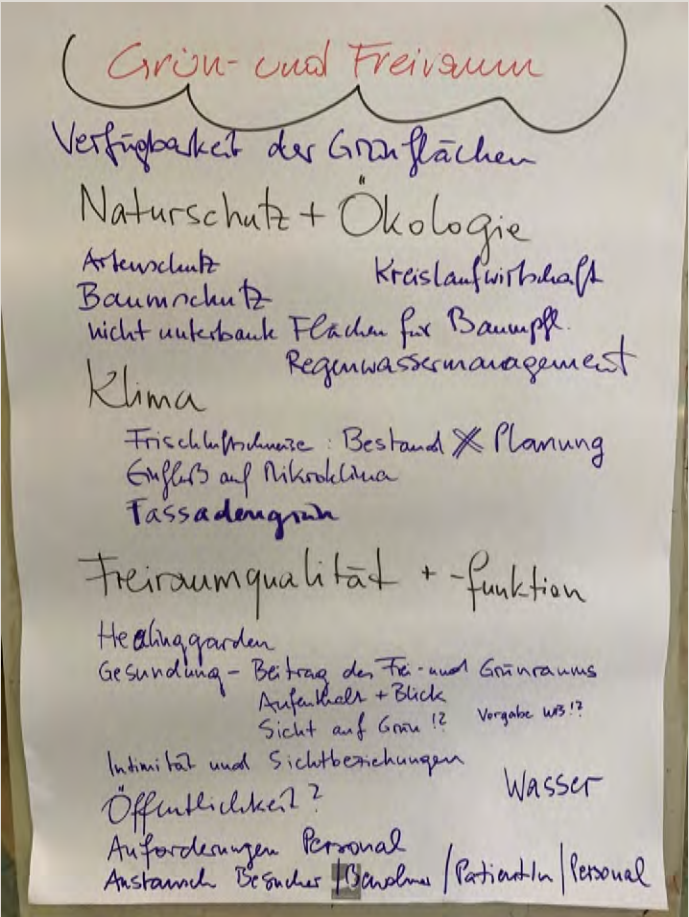 Grün- und Freiraum
Verfügbarkeit der Grünflächen
Naturschutz + Ökologie
Artenschutz Kreislaufwirtschaft
Baumschutz
nicht unterbaute Flächen für Baumpfl.
Regenwassermanagement
Klima
Frischluftschneise : Bestand X Planung
Einfluß auf Mikroklima
Fassadengrün
Freiraumqualität + -funktion
Healinggarden
Gesundung - Beitrag des Frei- und Grünraums
Aufenthalt + Blick
Sicht auf Grün !? Vorgabe WB !?
Intimität und Sichtbeziehungen
Wasser
Öffentlichkeit ?
Anforderungen Personal
Austausch Besucher / Bewohner / PatientIn / Personal